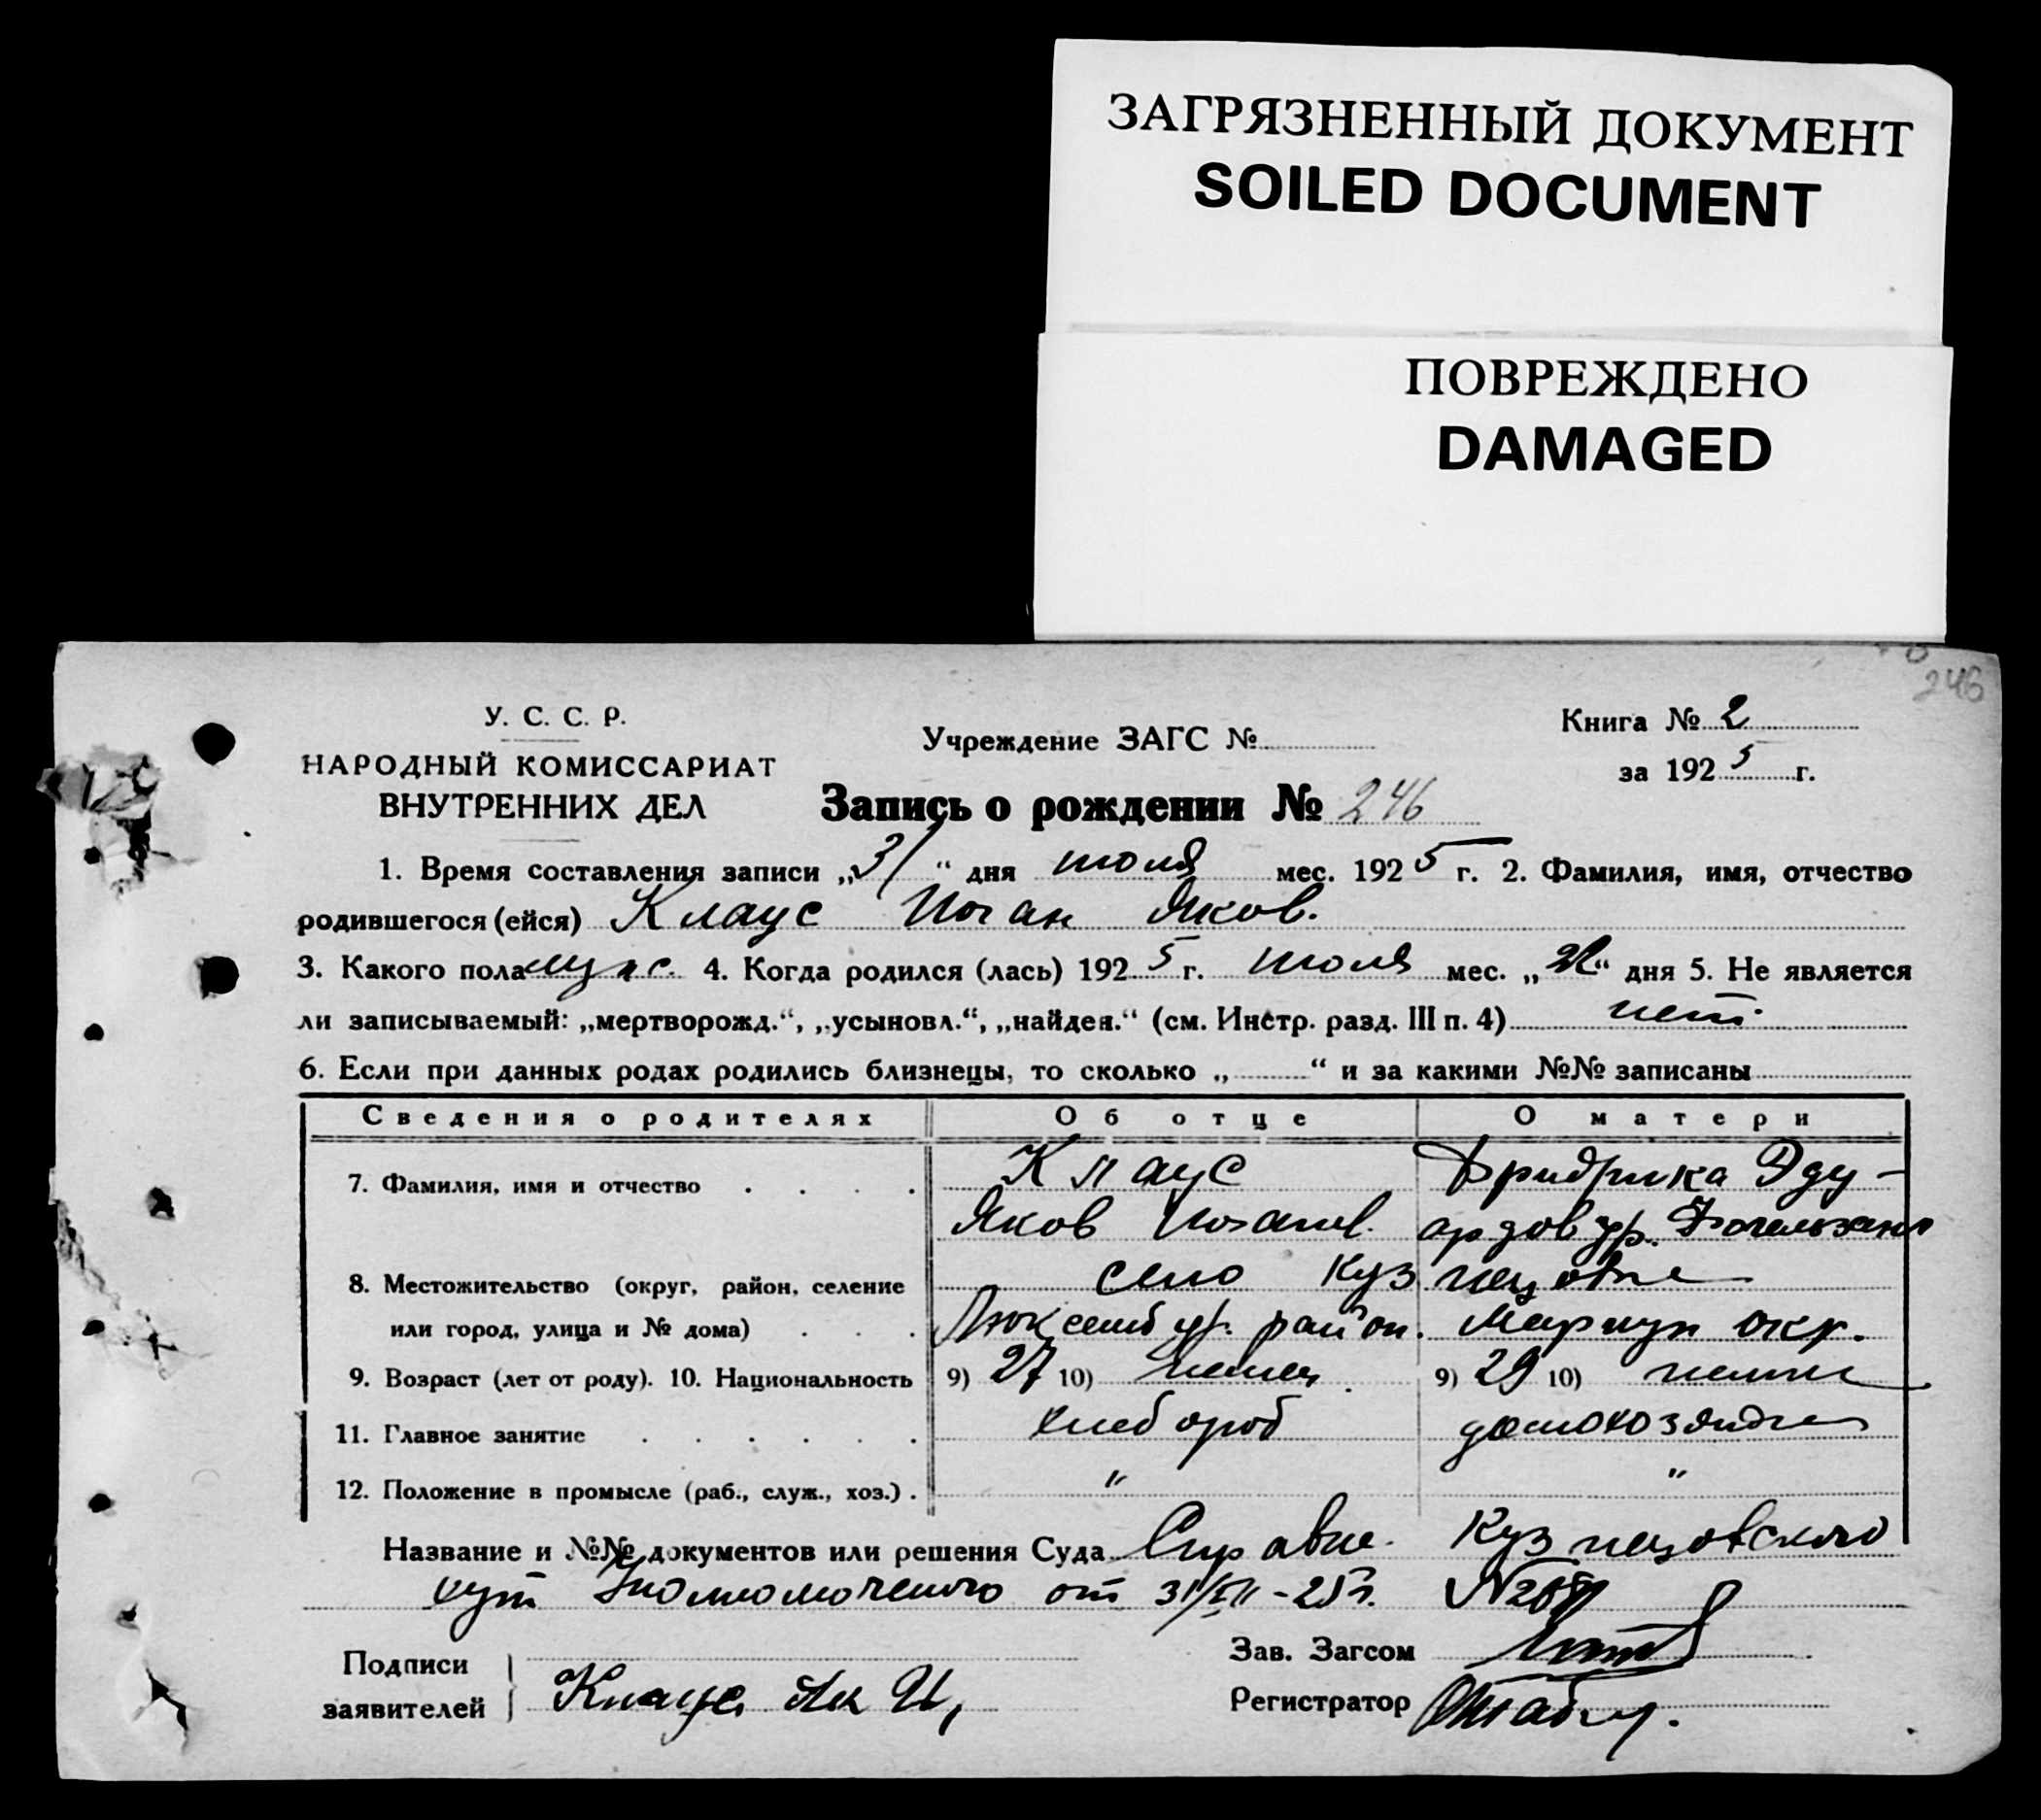 ЗАГРЯЗНЕННЫЙ ДОКУМЕНТ
SOILED DOCUMENT
ПОВРЕЖДЕНО
DAMAGED
246
У. С. С. Р.
НАРОДНЫЙ КОМИССАРИАТ
ВНУТРЕННИХ ДЕЛ
Учреждение ЗАГС №
Книга № 2
за 1925 г.
Запись о рождении № 246
1. Время составления записи „31“ дня июля мес. 1925 г. 2. Фамилия, имя, отчество
родившегося (ейся) Клаус Иоган Яков.
3. Какого пола муж. 4. Когда родился (лась) 1925 г. июля мес. „ “ дня 5. Не является
ли записываемый: „мертворожд.“, „усыновл.“, „найден.“ (см. Инстр. разд. III п. 4) нет.
6. Если при данных родах родились близнецы, то сколько „ “ и за какими №№ записаны
Сведения о родителях Об отце О матери
7. Фамилия, имя и отчество Клаус Фридрика Эду-
Яков Иоганов. ардов ур.
8. Местожительство (округ, район, селение село Кузнецовка
или город, улица и № дома) Люксембур. район. Мариуп окр.
9. Возраст (лет от роду). 10. Национальность 9) 27 10) немец 9) 29 10) немка
11. Главное занятие хлебороб домохозяйка
12. Положение в промысле (раб., служ., хоз.) . " "
Название и №№ документов или решения Суда Справка Кузнецовского
хут Уполномоченого от 31/VII-25г.
Подписи
заявителей Клаус Як И,
Зав. Загсом
Регистратор